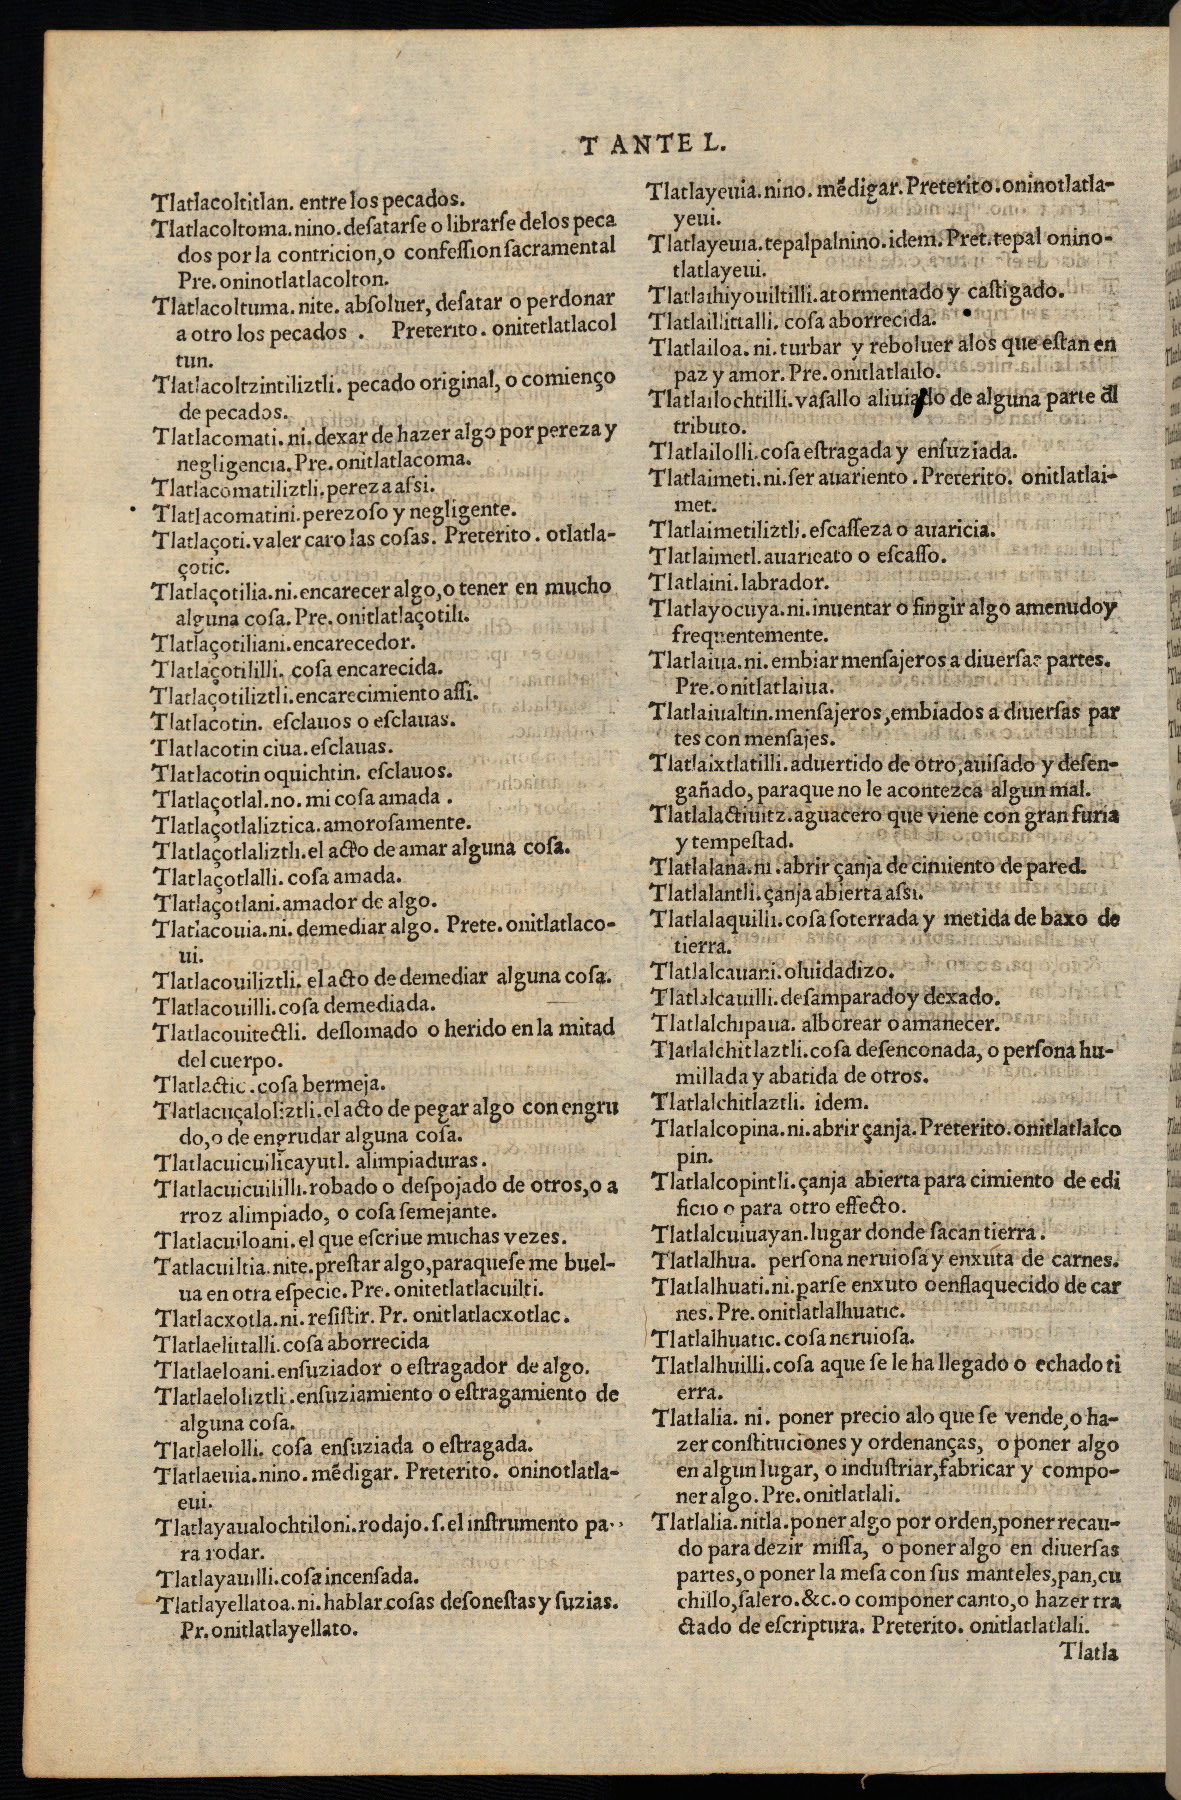 T ANTE L.
Tlatlacoltitlan. entre los pecados.
Tlatlacoltoma. nino. desatarse o librarse delos peca
dos por la contricion, o confession sacramental
Pre. oninotlatlacolton.
Tlatlacoltuma. nite. absoluer, desatar o perdonar
a otro los pecados . Preterito. onitetlatlacol
tun.
Tlatlacoltzintiliztli. pecado original, o comienço
de pecados.
Tlatlacomati. ni. dexar de hazer algo por pereza y
negligencia. Pre. onitlatlacoma.
Tlatlacomatiliztli. pereza assi.
Tlatlacomatini. perezoso y negligente.
Tlatlaçoti. valer caro las cosas. Preterito. otlatla-
çotic.
Tlatlaçotilia. ni. encarecer algo, o tener en mucho
alguna cosa. Pre. onitlatlaçotili.
Tlatlaçotiliani. encarecedor.
Tlatlaçotililli. cosa encarecida.
Tlatlaçotiliztli. encarecimiento assi.
Tlatlacotin. esclauos o esclauas.
Tlatlacotin ciua. esclauas.
Tlatlacotin oquichtin. esclauos.
Tlatlaçotlal. no. mi cosa amada .
Tlatlaçotlaliztica. amorosamente.
Tlatlaçotlaliztli. el acto de amar alguna cosa.
Tlatlaçotlalli. cosa amada.
Tlatlaçotlani. amador de algo.
Tlatlacouia. ni. demediar algo. Prete. onitlatlaco-
ui.
Tlatlacouiliztli. el acto de demediar alguna cosa.
Tlatlacouilli. cosa demediada.
Tlatlacouitectli. deslomado o herido en la mitad
del cuerpo.
Tlatlactic. cosa bermeja.
Tlatlacuçaloliztli. el acto de pegar algo con engru
do, o de engrudar alguna cosa.
Tlatlacuicuilicayutl. alimpiaduras.
Tlatlacuicuililli. robado o despojado de otros, o a
rroz alimpiado, o cosa semejante.
Tlatlacuiloani. el que escriue muchas vezes.
Tatlacuiltia. nite. prestar algo, paraque se me buel-
ua en otra especie. Pre. onitetlatlacuilti.
Tlatlacxotla. ni. resistir. Pr. onitlatlacxotlac.
Tlatlaelittalli. cosa aborrecida
Tlatlaeloani. ensuziador o estragador de algo.
Tlatlaeloliztli. ensuziamiento o estragamiento de
alguna cosa.
Tlatlaelolli. cosa ensuziada o estragada.
Tlatlaeuia. nino. mẽdigar. Preterito. oninotlatla-
eui.
Tlatlayaualochtiloni. rodajo. s. el instrumento pa-
ra rodar.
Tlatlayauilli. cosa incensada.
Tlatlayellatoa. ni. hablar cosas desonestas y suzias.
Pr. onitlatlayellato.
Tlatlayeuia. nino. mẽdigar. Preterito. oninotlatla-
yeui.
Tlatlayeuia. tepalpalnino. idem. Pret. tepal onino-
tlatlayeui.
Tlatlaihiyouiltilli. atormentado y castigado.
Tlatlailittalli. cosa aborrecida.
Tlatlailoa. ni. turbar y reboluer alos que estan en
paz y amor. Pre. onitlatlailo.
Tlatlailochtilli. vasallo aliuiado de alguna parte ďl
tributo.
Tlatlailolli. cosa estragada y ensuziada.
Tlatlaimeti. ni. ser auariento. Preterito. onitlatlai-
met.
Tlatlaimetiliztli. escasseza o auaricia.
Tlatlaimetl. auaricato o escasso.
Tlatlaini. labrador.
Tlatlayocuya. ni. inuentar o fingir algo amenudo y
frequentemente.
Tlatlaiua. ni. embiar mensajeros a diuersas partes.
Pre. onitlatlaiua.
Tlatlaiualtin. mensajeros, embiados a diuersas par
tes con mensajes.
Tlatlaixtlatilli. aduertido de otro, auisado y desen-
gañado, paraque no le acontezca algun mal.
Tlatlalactiuitz. aguacero que viene con gran furia
y tempestad.
Tlatlalana. ni. abrir çanja de cimiento de pared.
Tlatlalantli. çanja abierta assi.
Tlatlalaquilli. cosa soterrada y metida de baxo de
tierra.
Tlatlalcauani. oluidadizo.
Tlatlalcauilli. desamparado y dexado.
Tlatlalchipaua. alborear o amanecer.
Tlatlalchitlaztli. cosa desenconada, o persona hu-
millada y abatida de otros.
Tlatlalchitlaztli. idem.
Tlatlalcopina. ni. abrir çanja. Preterito. onitlatlalco
pin.
Tlatlalcopintli. çanja abierta para cimiento de edi
ficio o para otro effecto.
Tlatlalcuiuayan. lugar donde sacan tierra.
Tlatlalhua. persona neruiosa y enxuta de carnes.
Tlatlalhuati. ni. parse enxuto o enflaquecido de car
nes. Pre. onitlatlalhuatic.
Tlatlalhuatic. cosa neruiosa.
Tlatlalhuilli. cosa aque se le ha llegado o echado ti
erra.
Tlatlalia. ni. poner precio alo que se vende, o ha-
zer constituciones y ordenanças, o poner algo
en algun lugar, o industriar, fabricar y compo-
ner algo. Pre. onitlatlali.
Tlatlalia. nitla. poner algo por orden, poner recau-
do para dezir missa, o poner algo en diuersas
partes, o poner la mesa con sus manteles, pan, cu
chillo, salero. &c. o componer canto, o hazer tra
ctado de escriptura. Preterito. onitlatlatlali.
Tlatla